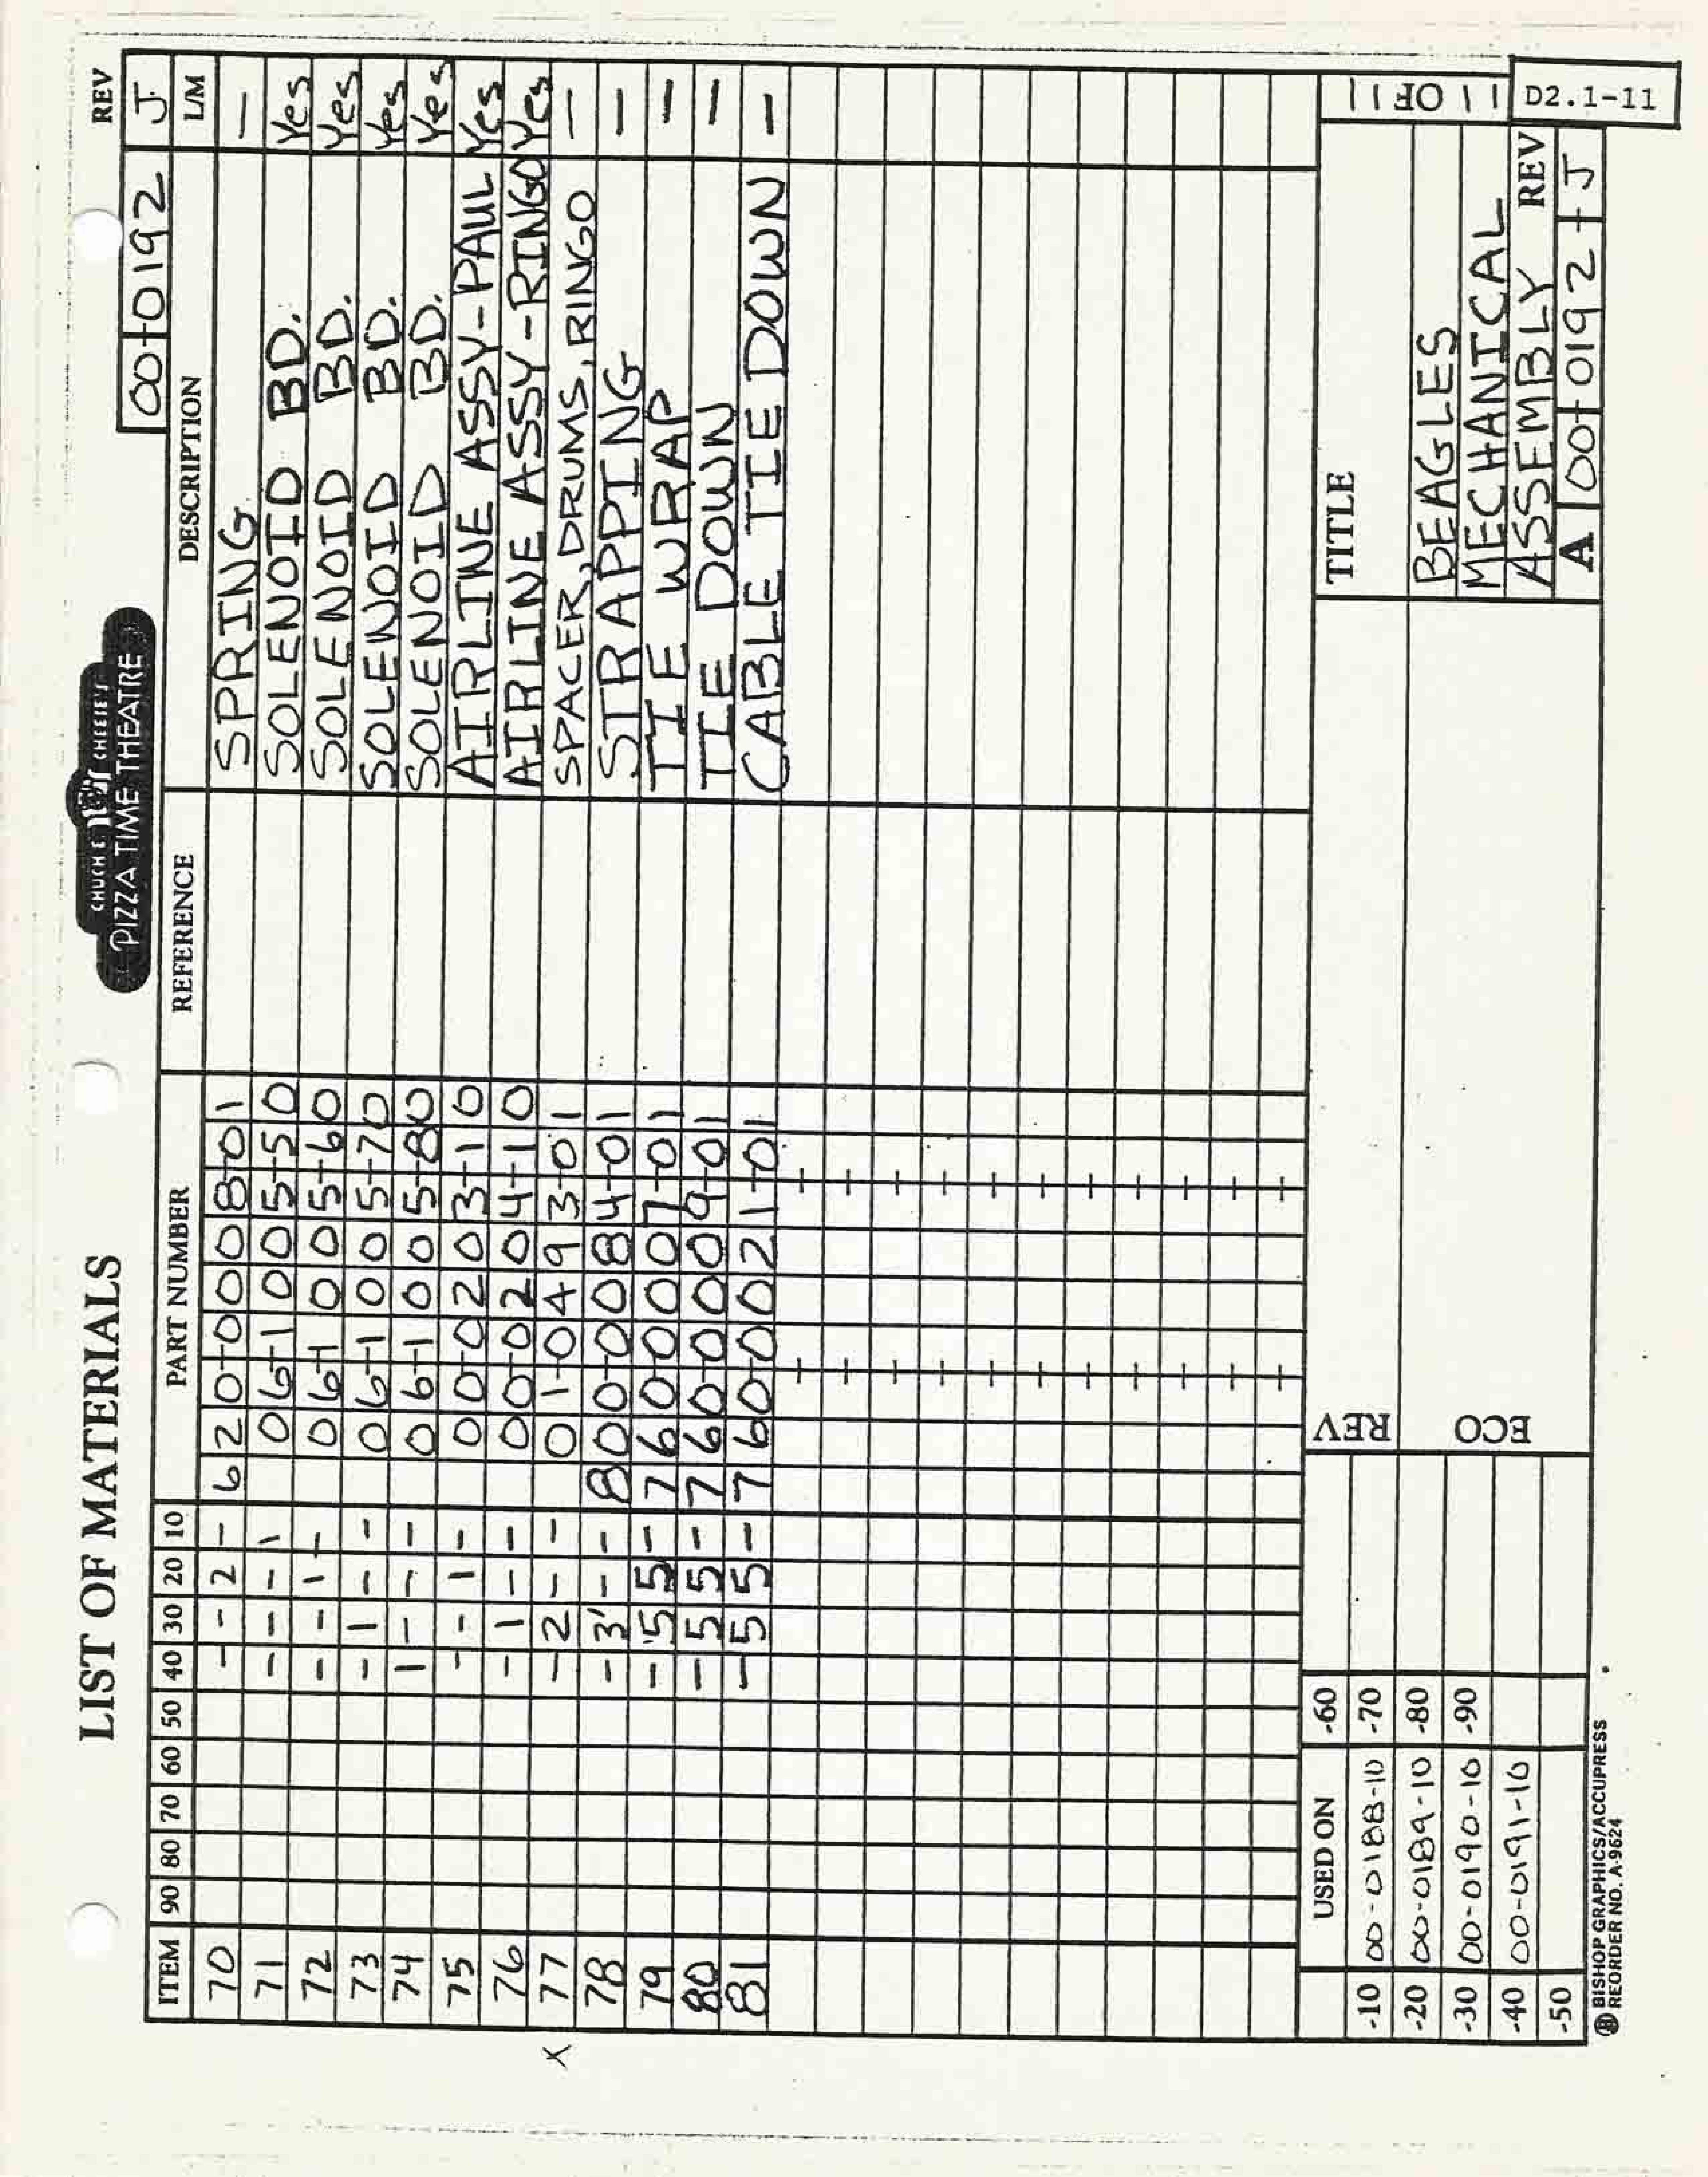 LIST OF MATERIALS
CHUCK E. CHEESE'S
PIZZA TIME THEATRE
REV
00-0192 J
ITEM 90 80 70 60 50 40 30 20 10 PART NUMBER REFERENCE DESCRIPTION L/M
70 - - 2 - 620-0008-01 SPRING -
71 - - - 1 06-1005-50 SOLENOID BD. Yes
72 - - 1 - 06-1005-60 SOLENOID BD. Yes
73 - 1 - - 06-1005-70 SOLENOID BD. Yes
74 1 - - - 06-1005-80 SOLENOID BD. Yes
75 - - 1 - 00-0203-10 AIRLINE ASSY-PAUL Yes
76 - 1 - - 00-0204-10 AIRLINE ASSY-RINGO Yes
X 77 - 2 - - 01-0493-01 SPACER, DRUMS, RINGO -
78 - 3' - - 800-0084-01 STRAPPING -
79 - 5 5 - 760-0007-01 TIE WRAP -
80 - 5 5 - 760-0009-01 TIE DOWN -
81 - 5 5 - 760-0021-01 CABLE TIE DOWN -
USED ON -60 REV TITLE 11 OF 11
-10 00-0188-10 -70
-20 00-0189-10 -80 ECO BEAGLES
-30 00-0190-10 -90 MECHANICAL
-40 00-0191-10 ASSEMBLY REV
-50 A 00-0192-J
D2.1-11
B BISHOP GRAPHICS/ACCUPRESS
REORDER NO. A-9624